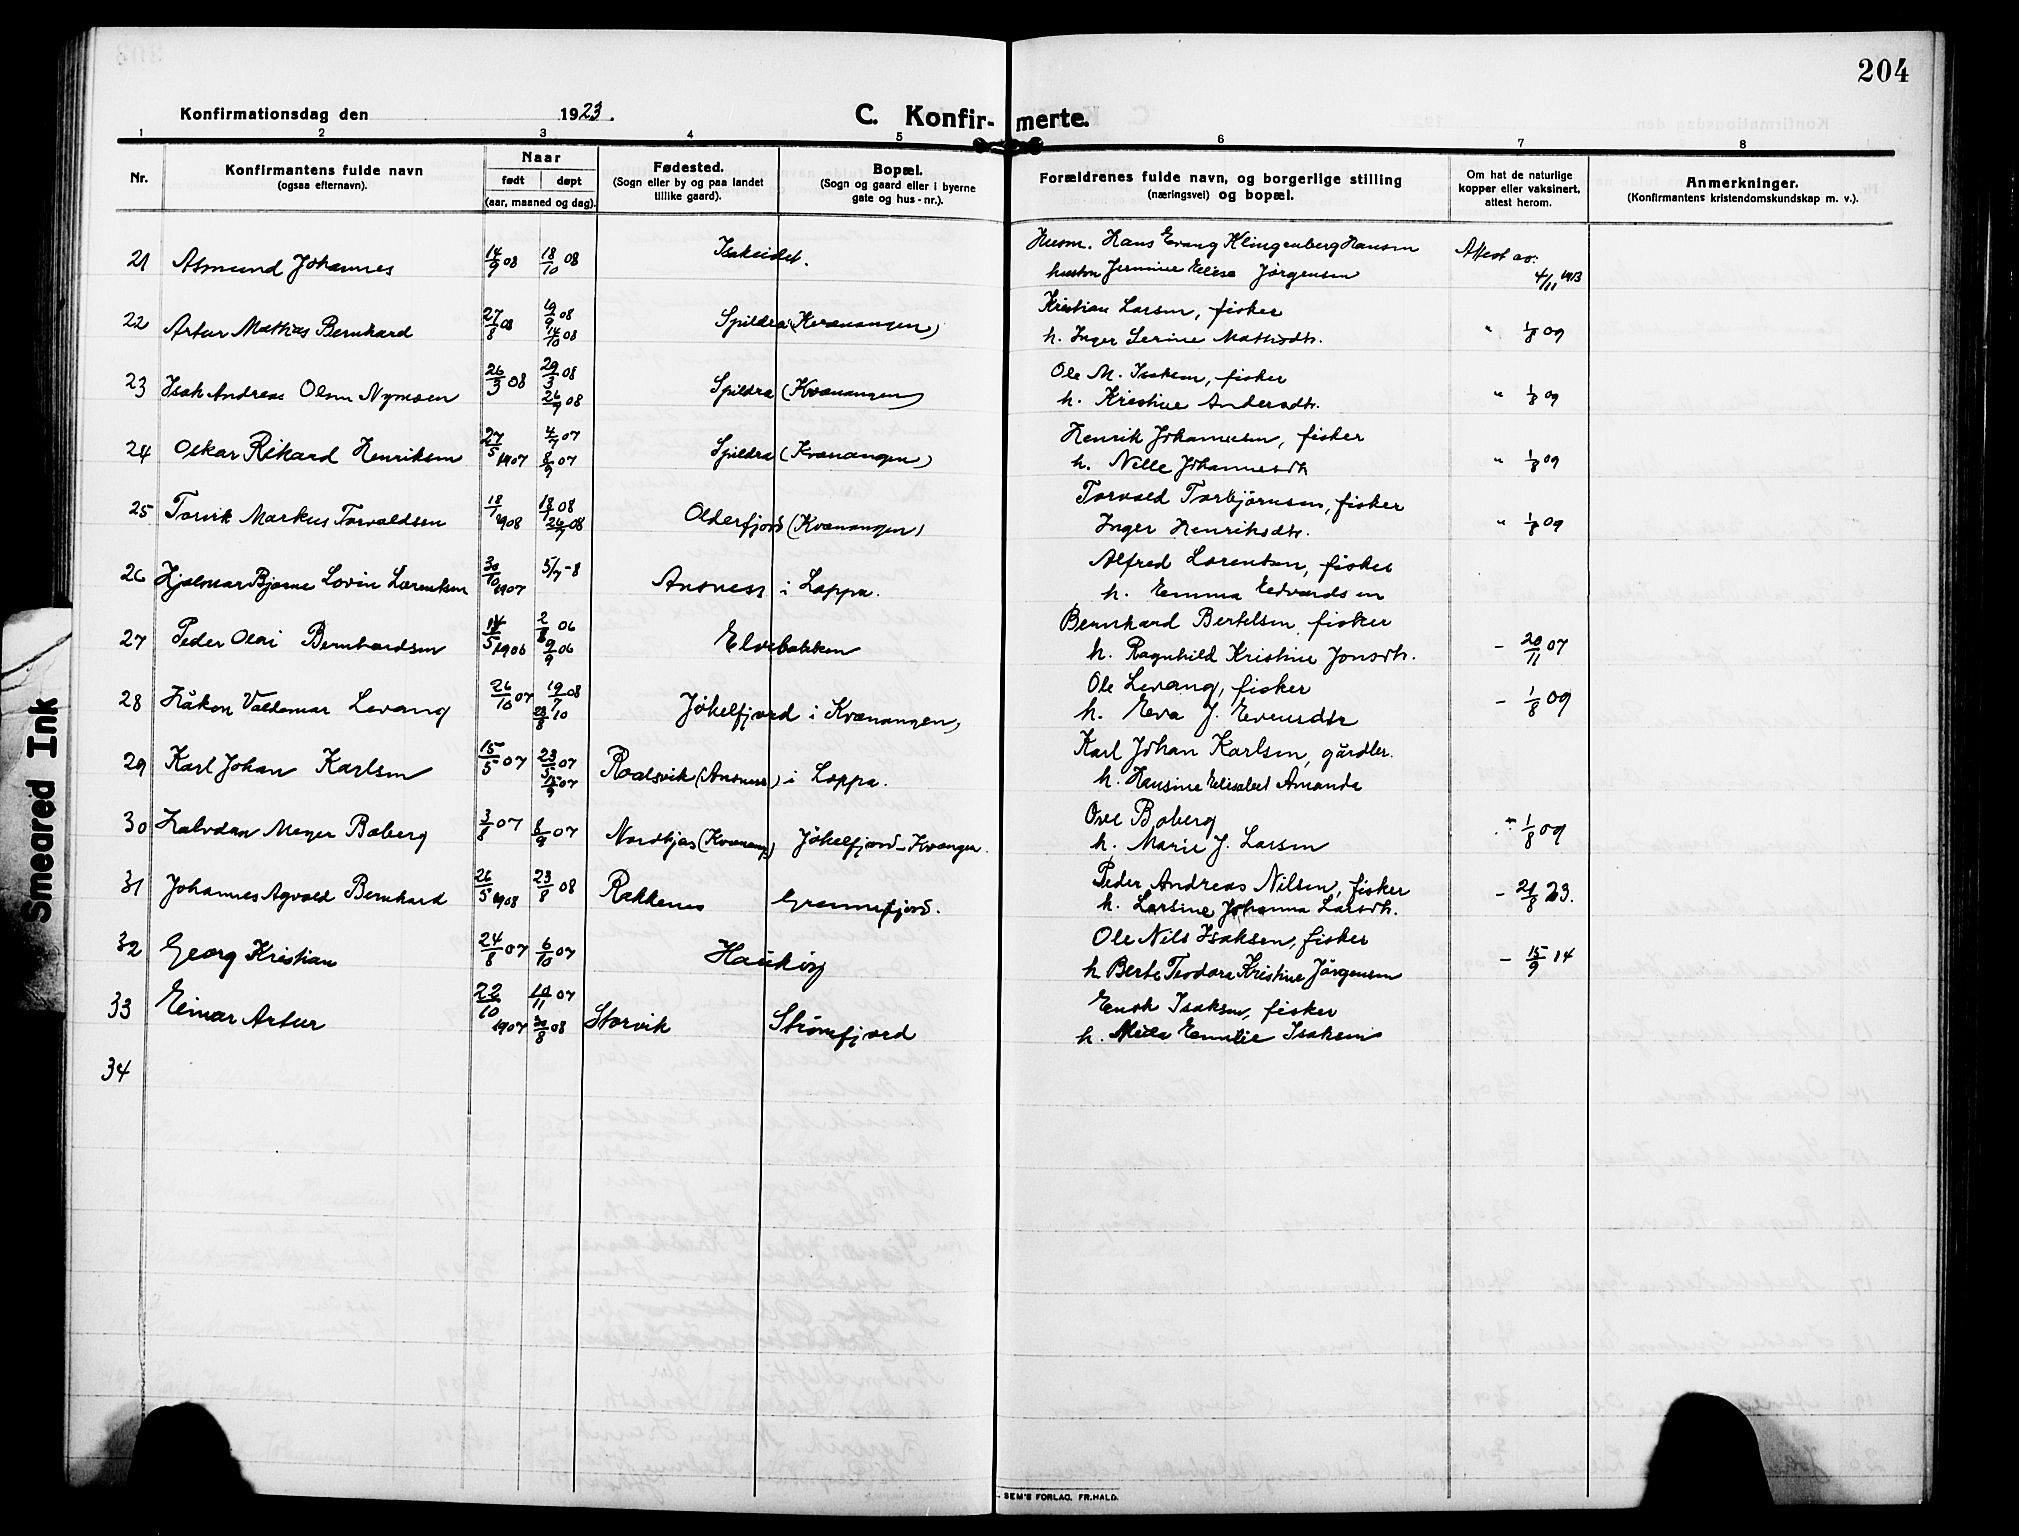 204
Konfirmationsdag den 1923.
C. Konfirmerte.
1 2 3 4 5 6 7 8
Nr.
Konfirmantens fulde navn
(ogsaa efternavn).
Naar
født døpt
(aar, maaned og dag).
Fødested.
(Sogn eller by og paa landet
tillike gaard).
Bopæl.
(Sogn og gaard eller i byerne
gate og hus-nr.).
Forældrenes fulde navn, og borgerlige stilling
(næringsvei) og bopæl.
Om hat de naturlige
kopper eller vaksinert,
attest herom.
Anmerkninger.
(Konfirmantens kristendomskundskap m. v.).
21 Asmund Johannes 14/9 08 18/10 08 Isakeidet. Husm. Hans Evang Klingenberg Hansen Attest av:
hustru Jermine Elise Jørgensen 4/11 1913
22 Artur Mathias Bernhard 27/8 08 19/9 08 14/10 08 Spildra (Kvænangen) Kristian Larsen, fisker
h. Inger Serine Mathisdtr. " 1/8 09
23 Isak Andreas Olsen Nymoen 26/3 08 29/3 08 26/9 08 Spildra (Kvænangen) Ole M. Isaksen, fisker
h. Kristine Andersdtr. " 1/8 09
24 Oskar Rikard Henriksen 27/5 1907 4/7 07 8/9 07 Spildra (Kvænangen) Henrik Johannesen, fisker
h. Nille Johannesdtr " 1/8 09
25 Torvik Markus Torvaldsen 18/1 1908 18/1 08 26/7 08 Olderfjord (Kvænangen) Torvald Torbjørnsen, fisker
Inger Henriksdtr. " 1/8 09
26 Hjalmar Bjarne Lovin Lorentsen 30/10 1907 5/7-8 Ansness i Loppa. Alfred Lorentsen, fisker
h. Emma Edvardsen
27 Peder Olai Bernhardsen 14/5 1906 2/8 06 9/9 06 Elvebakken Bernhard Bertelsen, fisker
h. Ragnhild Kristine Jonsdtr. - 20/11 07
28 Håkon Valdemar Levang 26/10 07 19/7 08 28/8 10 Jøkelfjord i Kvænangen, Ole Levang, fisker
h. Eva J. Evensdtr - 1/8 09
29 Karl Johan Karlsen 15/5 07 23/5 07 15/9 07 Roalsvik (Ansness) i Loppa. Karl Johan Karlsen, gårdbr.
h. Hansine Elisabet Amanda
30 Halvdan Meyer Boberg 3/8 07 8/9 07 Nordkjos (Kvænang) Jøkelfjord - Kvanger. Ove Boberg
h. Marie J. Larsen " 1/8 09
31 Johannes Agvald Bernhard 26/5 1908 23/8 08 Rakkenes Grannefjord. Peder Andreas Nilsen, fisker
h. Larsine Johanna Larsdtr. - 21/8 23.
32 Georg Kristian 24/8 07 6/10 07 Haukøy Ole Nils Isaksen, fisker
h Berte Teodora Kristine Jørgensen - 15/9 14
33 Einar Artur 22/10 1907 10/11 07 30/8 08 Storvik Strømfjord Enok Isaksen, fisker
h. Milla Emelie Isaksen
34
SEM'S FORLAG. FR.HALD.
Smeared Ink